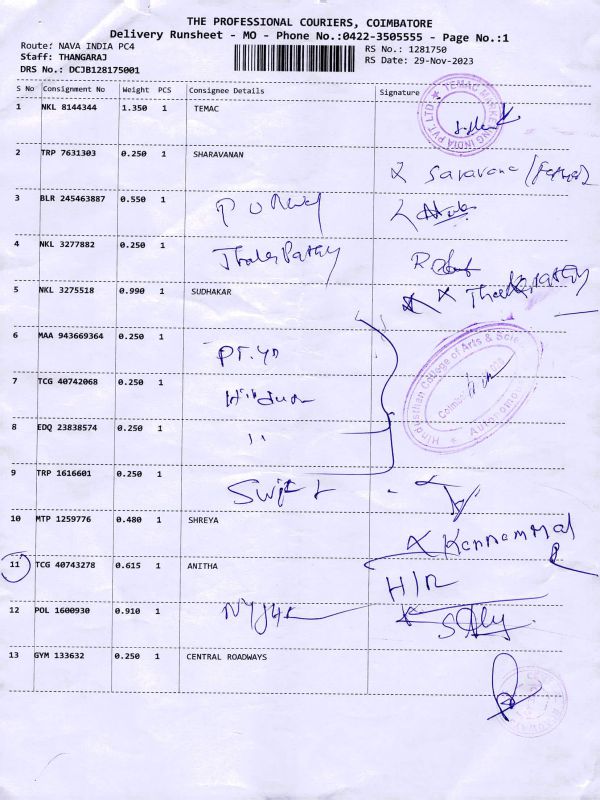 THE PROFESSIONAL COURIERS, COIMBATORE
Delivery Runsheet - MO - Phone No.:0422-3505555 - Page No.:1
Route: NAVA INDIA PC4
RS No.: 1281750
Staff: THANGARAJ
RS Date: 29-Nov-2023
DRS No.: DCJB128175001
S No Consignment No Weight PCS Consignee Details Signature
1 NKL 8144344 1.350 1 TEMAC
TEMAC INDIA PVT. LTD
2 TRP 7631303 0.250 1 SHARAVANAN
Saravana
3 BLR 245463887 0.550 1
4 NKL 3277882 0.250 1
5 NKL 3275518 0.990 1 SUDHAKAR
6 MAA 943669364 0.250 1
Hindusthan College of Arts &
7 TCG 40742068 0.250 1
8 EDQ 23838574 0.250 1 "
9 TRP 1616601 0.250 1
10 MTP 1259776 0.480 1 SHREYA
Kannammal
11 TCG 40743278 0.615 1 ANITHA
H/R
12 POL 1600930 0.910 1
13 GYM 133632 0.250 1 CENTRAL ROADWAYS